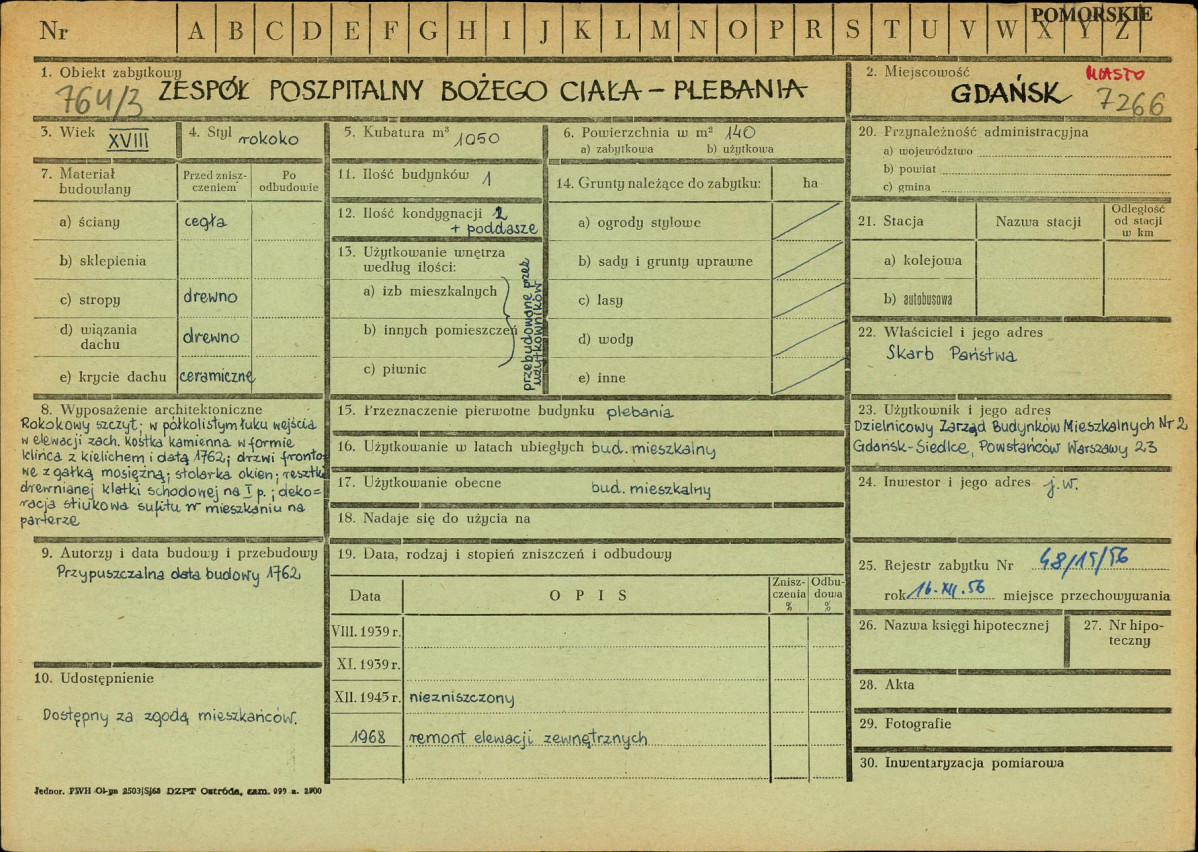 Nr A B C D E F G H I J K L M N O P R S T U V W X Y Z
POMORSKIE
1. Obiekt zabytkowy
764/3 ZESPÓŁ POSZPITALNY BOŻEGO CIAŁA – PLEBANIA
2. Miejscowość MIASTO
GDAŃSK 7266
3. Wiek XVIII
4. Styl rokoko
5. Kubatura m³ 1050
6. Powierzchnia w m² 140
a) zabytkowa b) użytkowa
7. Materiał budowlany
Przed zniszczeniem
Po odbudowie
a) ściany cegła
b) sklepienia
c) stropy drewno
d) wiązania dachu drewno
e) krycie dachu ceramiczne
8. Wyposażenie architektoniczne
Rokokowy szczyt; w półkolistym łuku wejścia
w elewacji zach. kostka kamienna w formie
klińca z kielichem i datą 1762; drzwi fronto=
we z gałką mosiężną; stolarka okien; resztki
drewnianej klatki schodowej na I p.; deko=
racja stiukowa sufitu w mieszkaniu na
parterze
9. Autorzy i data budowy i przebudowy
Przypuszczalna data budowy 1762
10. Udostępnienie
Dostępny za zgodą mieszkańców.
11. Ilość budynków 1
12. Ilość kondygnacji 2
+ poddasze
13. Użytkowanie wnętrza
według ilości:
a) izb mieszkalnych
b) innych pomieszczeń
c) piwnic
przebudowane przez
użytkowników
14. Grunty należące do zabytku: ha
a) ogrody stylowe
b) sady i grunty uprawne
c) lasy
d) wody
e) inne
15. Przeznaczenie pierwotne budynku plebania
16. Użytkowanie w latach ubiegłych bud. mieszkalny
17. Użytkowanie obecne bud. mieszkalny
18. Nadaje się do użycia na
19. Data, rodzaj i stopień zniszczeń i odbudowy
Data OPIS Zniszczenia % Odbudowa %
VIII. 1939 r.
XI. 1939 r.
XII. 1945 r. niezniszczony
1968 remont elewacji zewnętrznych
20. Przynależność administracyjna
a) województwo
b) powiat
c) gmina
21. Stacja Nazwa stacji Odległość od stacji w km
a) kolejowa
b) autobusowa
22. Właściciel i jego adres
Skarb Państwa
23. Użytkownik i jego adres
Dzielnicowy Zarząd Budynków Mieszkalnych Nr 2
Gdańsk-Siedlce, Powstańców Warszawy 23
24. Inwestor i jego adres j.w.
25. Rejestr zabytku Nr 48/15/56
rok 16.XII.56 miejsce przechowywania
26. Nazwa księgi hipotecznej
27. Nr hipoteczny
28. Akta
29. Fotografie
30. Inwentaryzacja pomiarowa
Jednor. PWH DZPT Ostróda, zam.